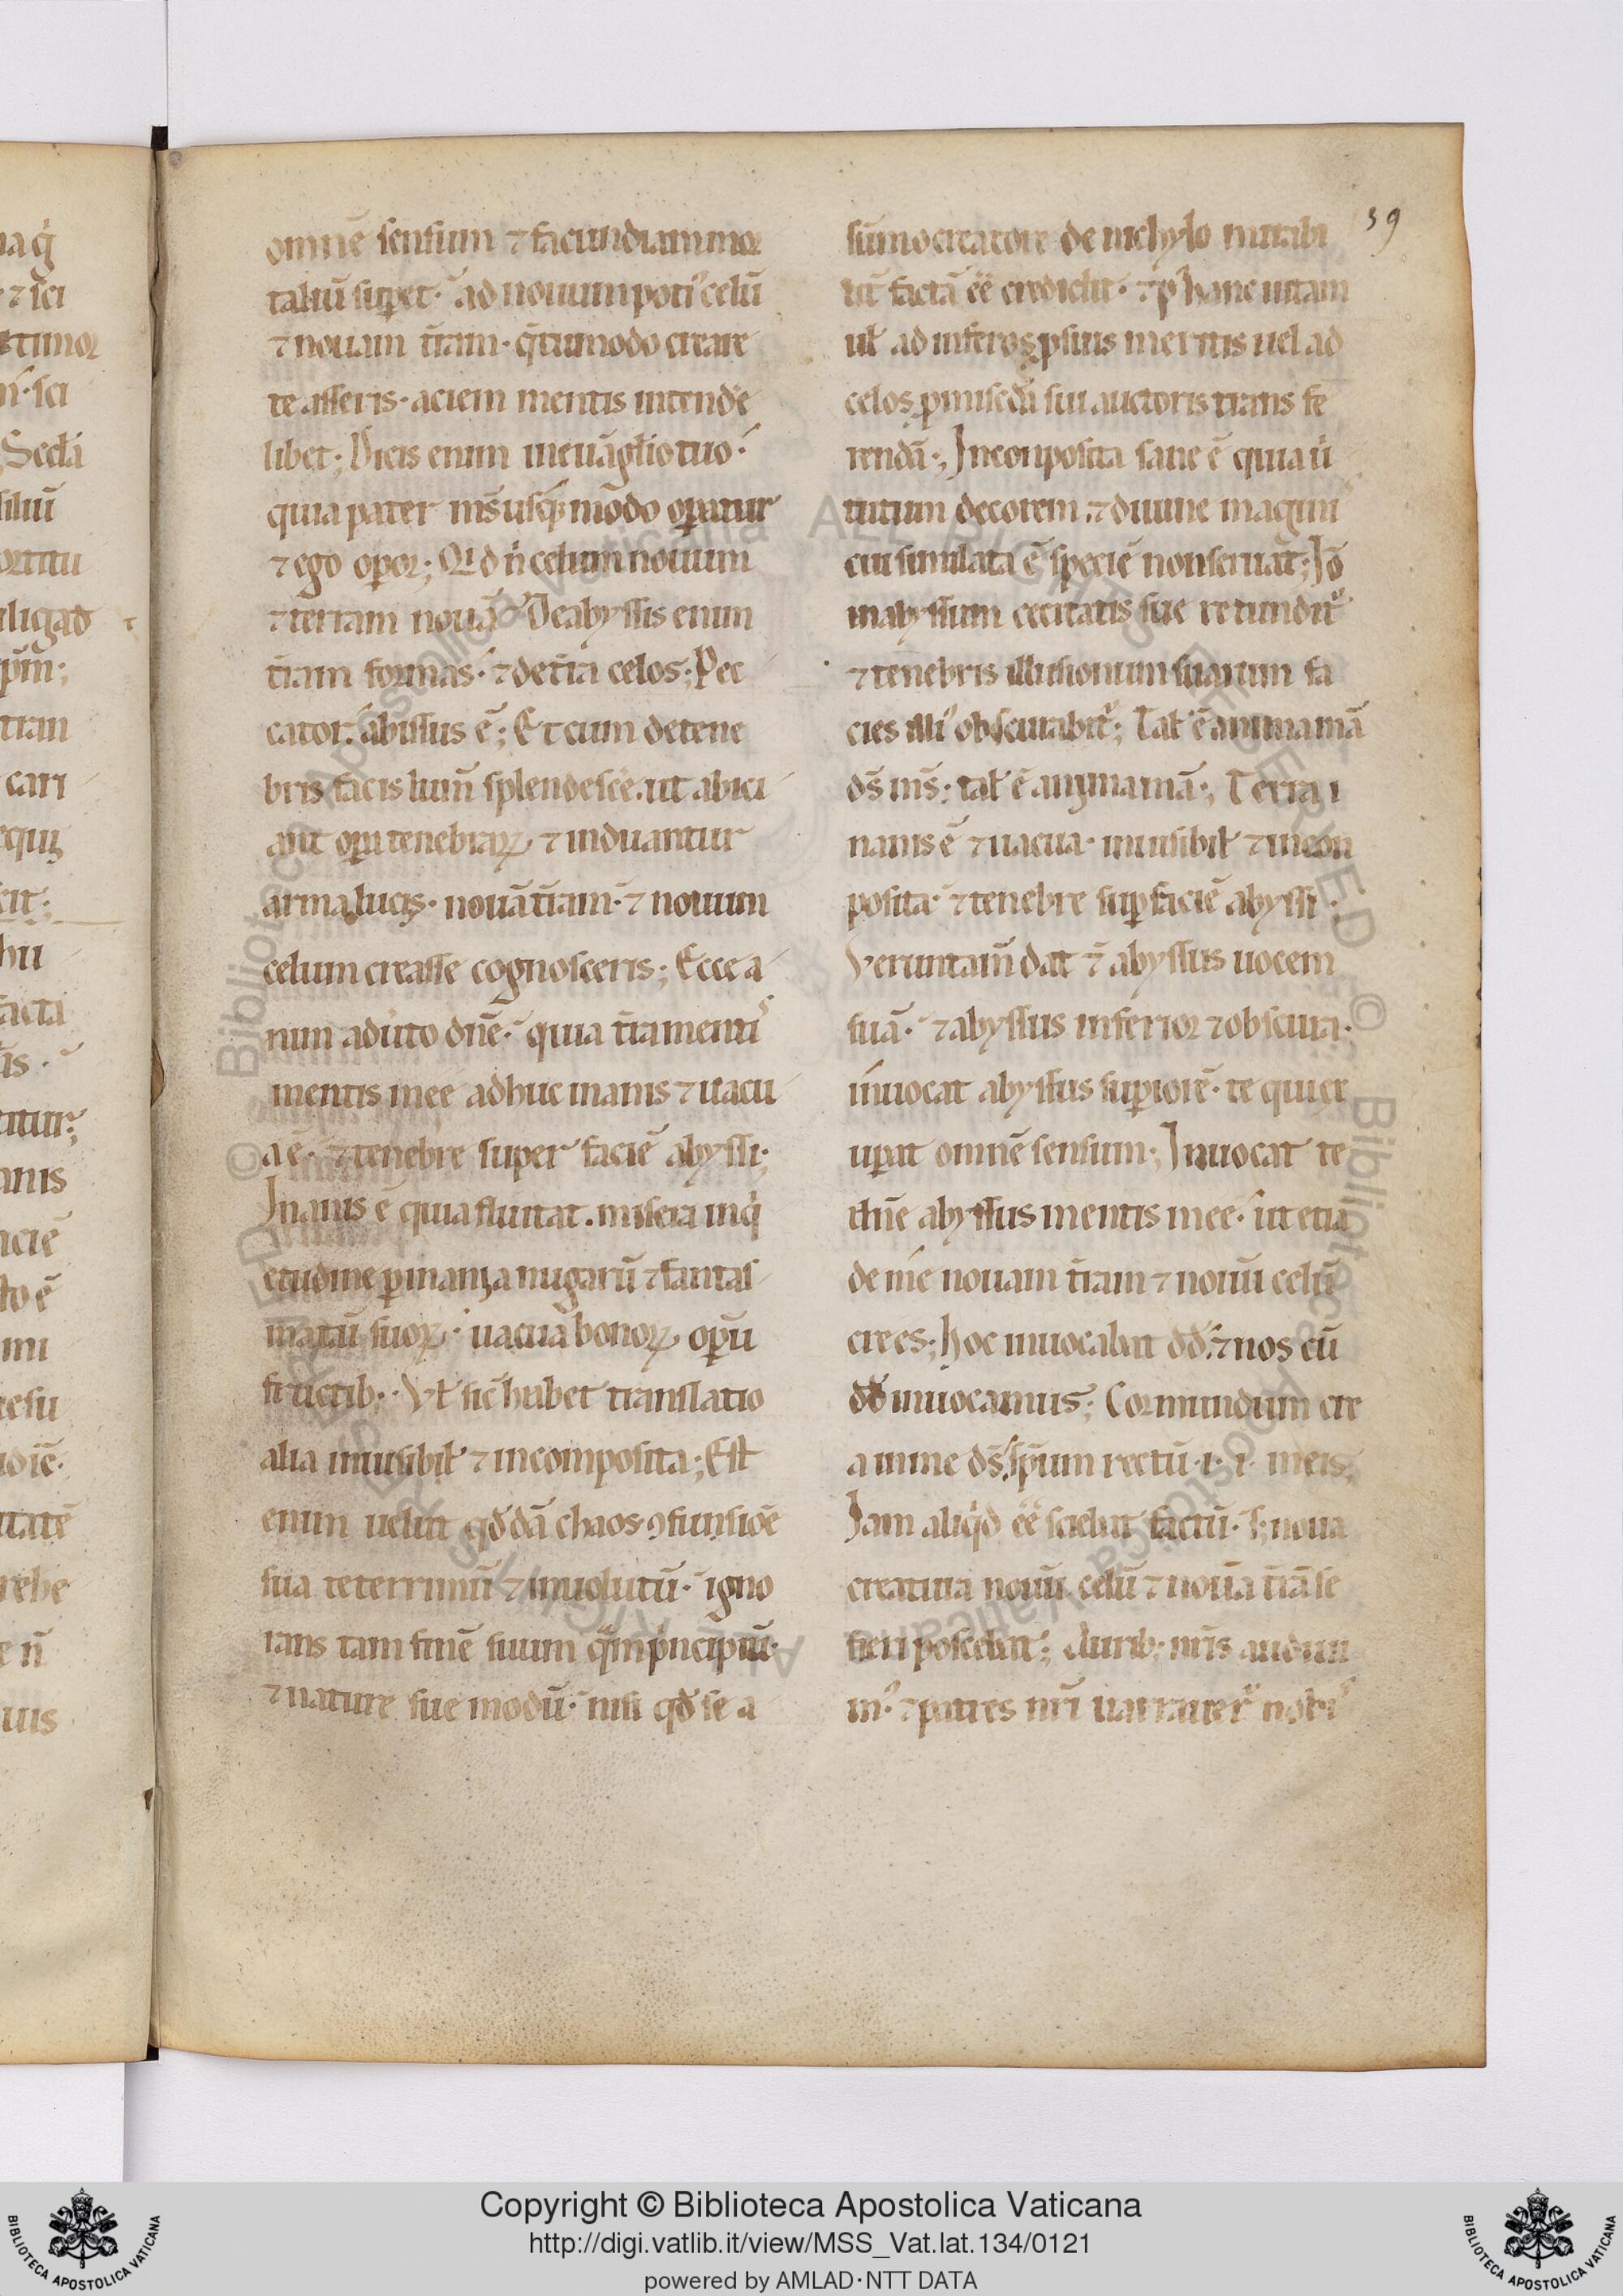 39
omnē sensum ⁊ facundiam mor
taliū suꝑet · ad nouum poti᷒ celū
⁊ nouam t̄ram · q̄tumodo creare
te asseris · aciem mentis intendĕ
libet ; Dicis enim in euāgl̄io tuo ·
quia pater ms̄ usq; mōdo oꝑatur
⁊ ego oꝑor ; Qi d n̄ celum nouum
⁊ terram nouā De abyssis enim
t̄ram formas · ⁊ de t̄ra celos ; Pec
cator abissus ē ; Et cum de tene
bris facis lum̄ splendescĕ . ut abici
ant oꝑa tenebraꝝ ⁊ induantur
arma lucis · nouā t̄ram · ⁊ nouum
celum creasse cognosceris ; Ecce a
nim aduto dn̄e · quia t̄ra
mentis mee adhuc inanis ⁊ uacu
a ē · ⁊ tenebre super faciē abyssi ;
Inanis ē quia fluitat . misera inq̇
etudine ꝑ inania nugarū ⁊ fantas
matū suoꝝ · uacua bonoꝝ oꝑū
fructib; · Vł sic̄ habet translatio
alia inuisibił ⁊ incomposita ; Est
enim uelut qd̄dā chaos · ꝯfunsiōe
sua teterrimū ⁊ inuolutū · igno
rans tam finē suum q̄m pͥncipiū ·
⁊ nature sue modū · nisi qd̄ se a
sūmo creatore de nichylo mirabi
lit̄ factā ēē credidit · ⁊ p᷒ hanc uitam
uł ad inferos ꝓ suis meritis uel ad
celos ꝑ mis̄cdā sui auctoris trans fe
rendā ·, Inconposita sane ē quia ů
tutum decorem . ⁊ diuine magnı
cui similata ē speciē non seruat ; Iō
in abyssum cecitatis sue retundit᷒
⁊ tenebris illusionum suarum fa
cies illi᷒ obscurabit᷒ ; Tał ē anima mā
ds̄ ms̄ ; tał ē anima mā ·, Terra i
nanis ē ⁊ uacua · inuisibił ⁊ incon
posita · ⁊ tenebre suꝑ faciē abyssi ;
Veruntam̄ dat ⁊̄ abyssus uocem
suā · ⁊ abyssus inferior ⁊ obscura ·
inuocat abyssus suꝑiorē · te qui ex
uꝑat omnē sensum ; Inuocat te
dn̄e abyssus mentis mee · ut etiā
de mē nouam t̄ram ⁊ nouū celū
crees ; hoc inuocabat dd̄ · ⁊ nos cū
dd̄ inuocamus ; Cor mundum cre
a in me ds̄ sp̄um rectū · i · i · meis ;
Iam aliq̇d ēē sciebat factū · s; noua
creatura nouū celū ⁊ nouā t̄rā se
fieri poscebat ; Aurib; nr̄is audiui
m᷒ · ⁊ patres nr̄i narrauer̄ nobi᷒
Copyright © Biblioteca Apostolica Vaticana
http://digi.vatlib.it/view/MSS_Vat.lat.134/0121
powered by AMLAD·NTT DATA